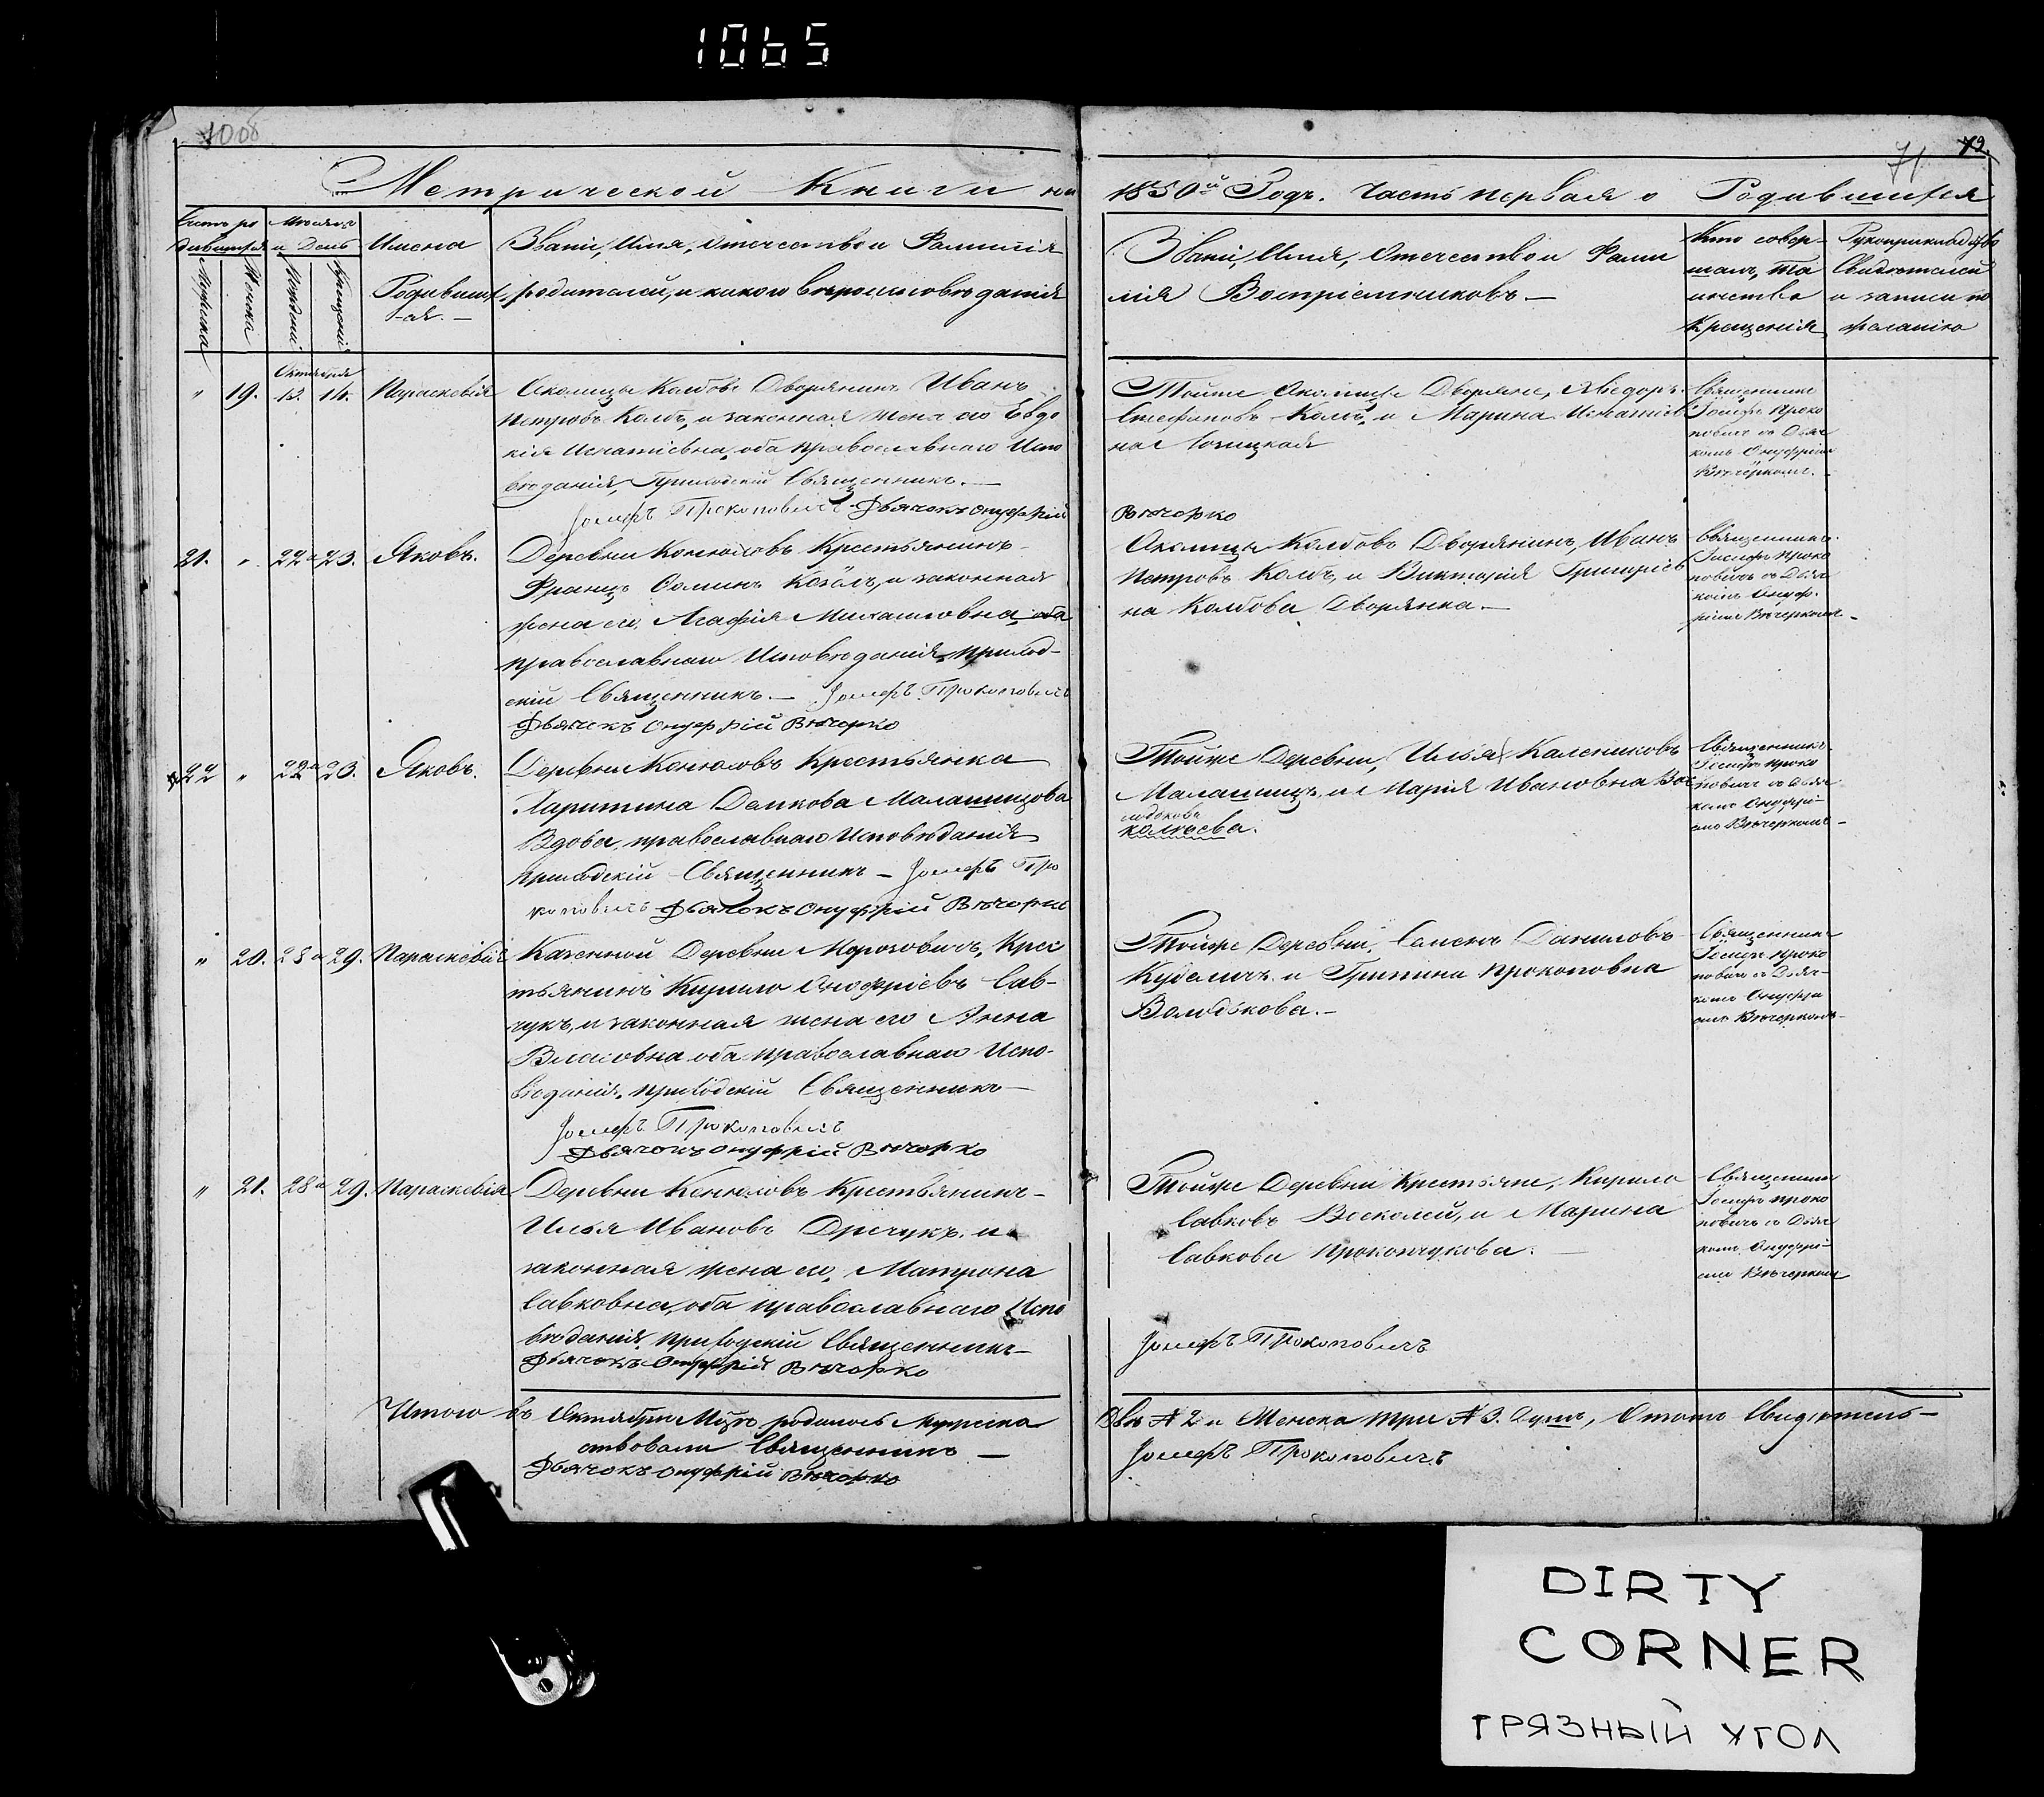 1065
1008
71
72.
Метрической Книги на
1850й Годъ. Часть первая о Родившихся
Счетъ ро
дившихся
Мѣсяцъ
и День
Мужеска
Женска
Рожденій
Крещеній
Имена
Родивших
ся. —
Званіе, Имя, Отечество и Фамилія
родителей, и какого вѣроисповѣданія
Званіе, Имя, Отечество и Фами
лія Воспріемниковъ —
Кто совер-
шалъ, та
инство
Крещенія
Рукоприкладство
Свидѣтелей
о записи по
желанію
Октября
" 19. 13. 14. Параскевія
Околицы Колбовъ Дворянинъ Иванъ
Петровъ Колбъ, и законная жена его Евдо
кія Игнатіевна, оба православнаго Испо
вѣданія, Приходскій Священникъ. —
Іосифъ Прокоповичъ Дьячокъ Онуфрій
Вѣчорко
Тойже Околицы Дворяне, Ѳеодоръ
Стефановъ Колбъ, и Марина Игнатіев
на
Священникъ
Іосифъ Проко
повичъ съ Дьяч
комъ Онуфріем
Вѣчеркомъ. —
21. " 22 и 23. Яковъ.
Деревни Конюховъ Крестьянинъ
Францъ Козелъ, и законная
жена его Агафія Михаиловна, оба
православнаго Исповѣданія, Приход-
скій Священникъ. — Іосифъ Прокоповичъ
Дьячекъ Онуфрій Вѣчорко
Околицы Колбовъ Дворянинъ, Иванъ
Петровъ Колбъ, и Викторія Григоріев
на Колбова Дворянка. —
Священникъ
Іосифъ Проко
повичъ съ Дьяч
комъ Онуф-
ріемъ Вѣчеркомъ. —
22 " 22 и 23. Яковъ.
Деревни Конюховъ Крестьянка
Харитина Демкова Малашицова
Вдова, православнаго Исповѣданія
Приходскій Священникъ — Іосифъ Про
коповичъ Дьячокъ Онуфрій Вѣчорко
Тойже Деревни, Илья Калениковъ
Малашицъ, и Марія Ивановна Вос
колѣева.
Священникъ
Іосифъ Проко
повичъ съ Дьяч
комъ Онуфрі-
емъ Вѣчеркомъ —
" 20. 28 и 29. Параскевія
Казенной Деревни Морозовичъ, Крес
тьянинъ Кирило Онофріевъ Сав-
чукъ, и законная жена его Анна
Власовна оба православнаго Испо-
вѣданія, приходскій Священникъ —
Іосифъ Прокоповичъ
Дьячокъ Онуфрій Вѣчорко
Тойже Деревни, Семенъ Даниловъ
Куделичъ и Грипина Прокоповна
Володькова. —
Священникъ
Іосифъ Проко
повичъ съ Дьяч-
комъ Онуфрі
емъ Вѣчеркомъ —
" 21. 28 и 29. Параскевія
Деревни Конюховъ Крестьянинъ —
Илья Ивановъ Дречукъ, и
законная жена его, Матрона
Савковна, оба православнаго Испо
вѣданія, Приходскій Священникъ —
Дьячокъ Онуфрій Вѣчорко
Тойже Деревни Крестьяне, Кирило
Савковъ Восколей, и Марина
Савкова Прокопчукова. —
Священникъ
Іосифъ Проко
повичъ съ Дьяч
комъ Онуфрі-
емъ Вѣчеркомъ
Іосифъ Прокоповичъ
Итого въ Октябрѣ Мцѣ родилось Мужеска
Два № 2 и Женска три № 3. Душъ, О томъ Свидѣтель-
ствовали Священникъ —
Іосифъ Прокоповичъ
Дьячокъ Онуфрій Вѣчорко
DIRTY
CORNER
ГРЯЗНЫЙ УГОЛ